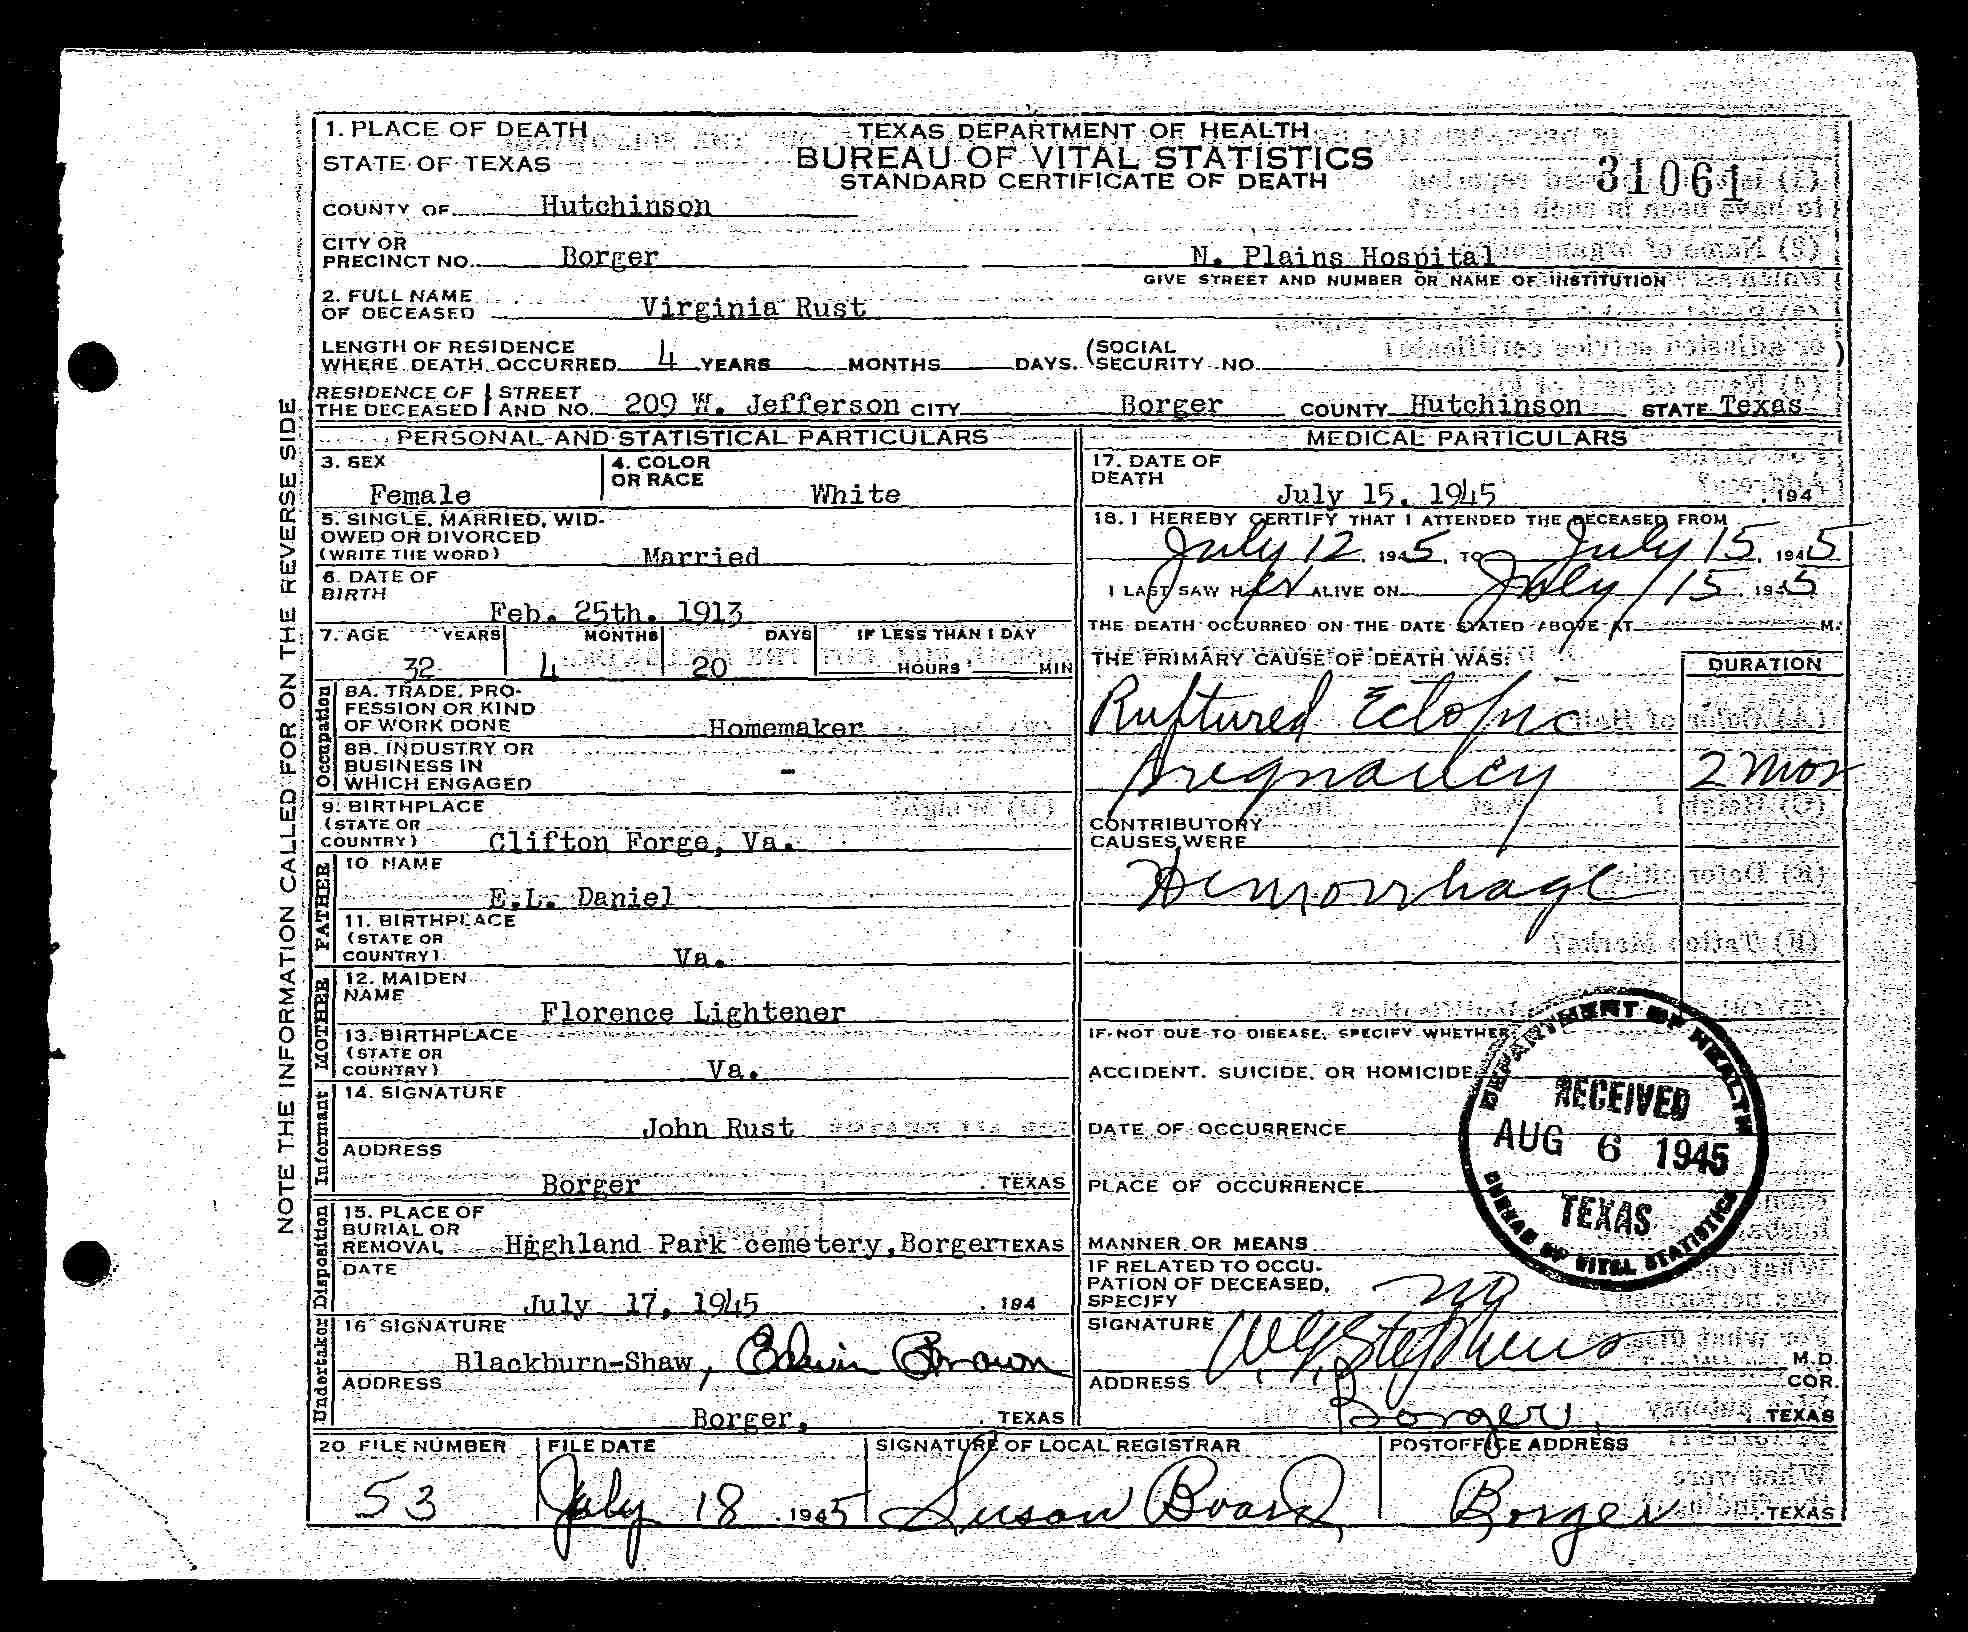 1. PLACE OF DEATH
STATE OF TEXAS
TEXAS DEPARTMENT OF HEALTH
BUREAU OF VITAL STATISTICS
STANDARD CERTIFICATE OF DEATH
31061
COUNTY OF Hutchinson
CITY OR
PRECINCT NO. Borger N. Plains Hospital
GIVE STREET AND NUMBER OR NAME OF INSTITUTION
2. FULL NAME
OF DECEASED Virginia Rust
LENGTH OF RESIDENCE
WHERE DEATH OCCURRED 4 YEARS MONTHS DAYS. (SOCIAL
SECURITY NO. )
RESIDENCE OF THE DECEASED STREET AND NO. 209 W. Jefferson CITY Borger COUNTY Hutchinson STATE Texas
NOTE THE INFORMATION CALLED FOR ON THE REVERSE SIDE
PERSONAL AND STATISTICAL PARTICULARS
3. SEX
Female
4. COLOR
OR RACE
White
5. SINGLE, MARRIED, WID-
OWED OR DIVORCED
(WRITE THE WORD) Married
6. DATE OF
BIRTH
Feb. 25th. 1913
7. AGE YEARS MONTHS DAYS IF LESS THAN 1 DAY
32 4 20 HOURS MIN
Occupation
8A. TRADE, PRO-
FESSION OR KIND
OF WORK DONE Homemaker
8B. INDUSTRY OR
BUSINESS IN
WHICH ENGAGED -
9. BIRTHPLACE
(STATE OR
COUNTRY) Clifton Forge, Va.
FATHER
10 NAME
E.L. Daniel
11. BIRTHPLACE
(STATE OR
COUNTRY) Va.
MOTHER
12. MAIDEN
NAME
Florence Lightener
13. BIRTHPLACE
(STATE OR
COUNTRY) Va.
Informant
14. SIGNATURE
John Rust
ADDRESS
Borger . TEXAS
Disposition
15. PLACE OF
BURIAL OR
REMOVAL Highland Park cemetery, Borger TEXAS
DATE
July 17, 1945 . 194
Undertaker
16 SIGNATURE
Blackburn-Shaw, Edwin Brown
ADDRESS
Borger, . TEXAS
MEDICAL PARTICULARS
17. DATE OF
DEATH
July 15, 1945 . 194
18. I HEREBY CERTIFY THAT I ATTENDED THE DECEASED FROM
July 12, 1945, TO July 15, 1945
I LAST SAW HER ALIVE ON July 15, 1945
THE DEATH OCCURRED ON THE DATE STATED ABOVE AT M.
THE PRIMARY CAUSE OF DEATH WAS: DURATION
Ruptured Ectopic
Pregnancy 2 mos
CONTRIBUTORY
CAUSES WERE
Hemorrhage
IF NOT DUE TO DISEASE, SPECIFY WHETHER
ACCIDENT, SUICIDE, OR HOMICIDE
DATE OF OCCURRENCE
PLACE OF OCCURRENCE
MANNER OR MEANS
DEPARTMENT OF HEALTH
RECEIVED
AUG 6 1945
TEXAS
BUREAU OF VITAL STATISTICS
IF RELATED TO OCCU-
PATION OF DECEASED,
SPECIFY no
SIGNATURE W.G. Stephens M.D.
ADDRESS COR.
Borger, TEXAS
20 FILE NUMBER FILE DATE SIGNATURE OF LOCAL REGISTRAR POSTOFFICE ADDRESS
53 July 18, 1945 Susan Board Borger TEXAS